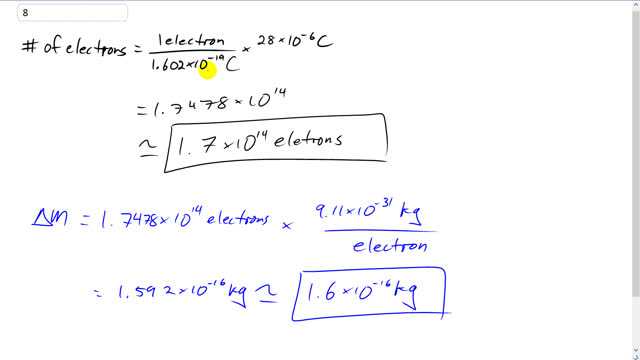 8
# of electrons = 1 electron / 1.602×10⁻¹⁹ C × 28×10⁻⁶ C
= 1.7478×10¹⁴
≃ 1.7×10¹⁴ eletrons
ΔM = 1.7478×10¹⁴ electrons × 9.11×10⁻³¹ kg / electron
= 1.592×10⁻¹⁶ kg ≃ 1.6×10⁻¹⁶ kg